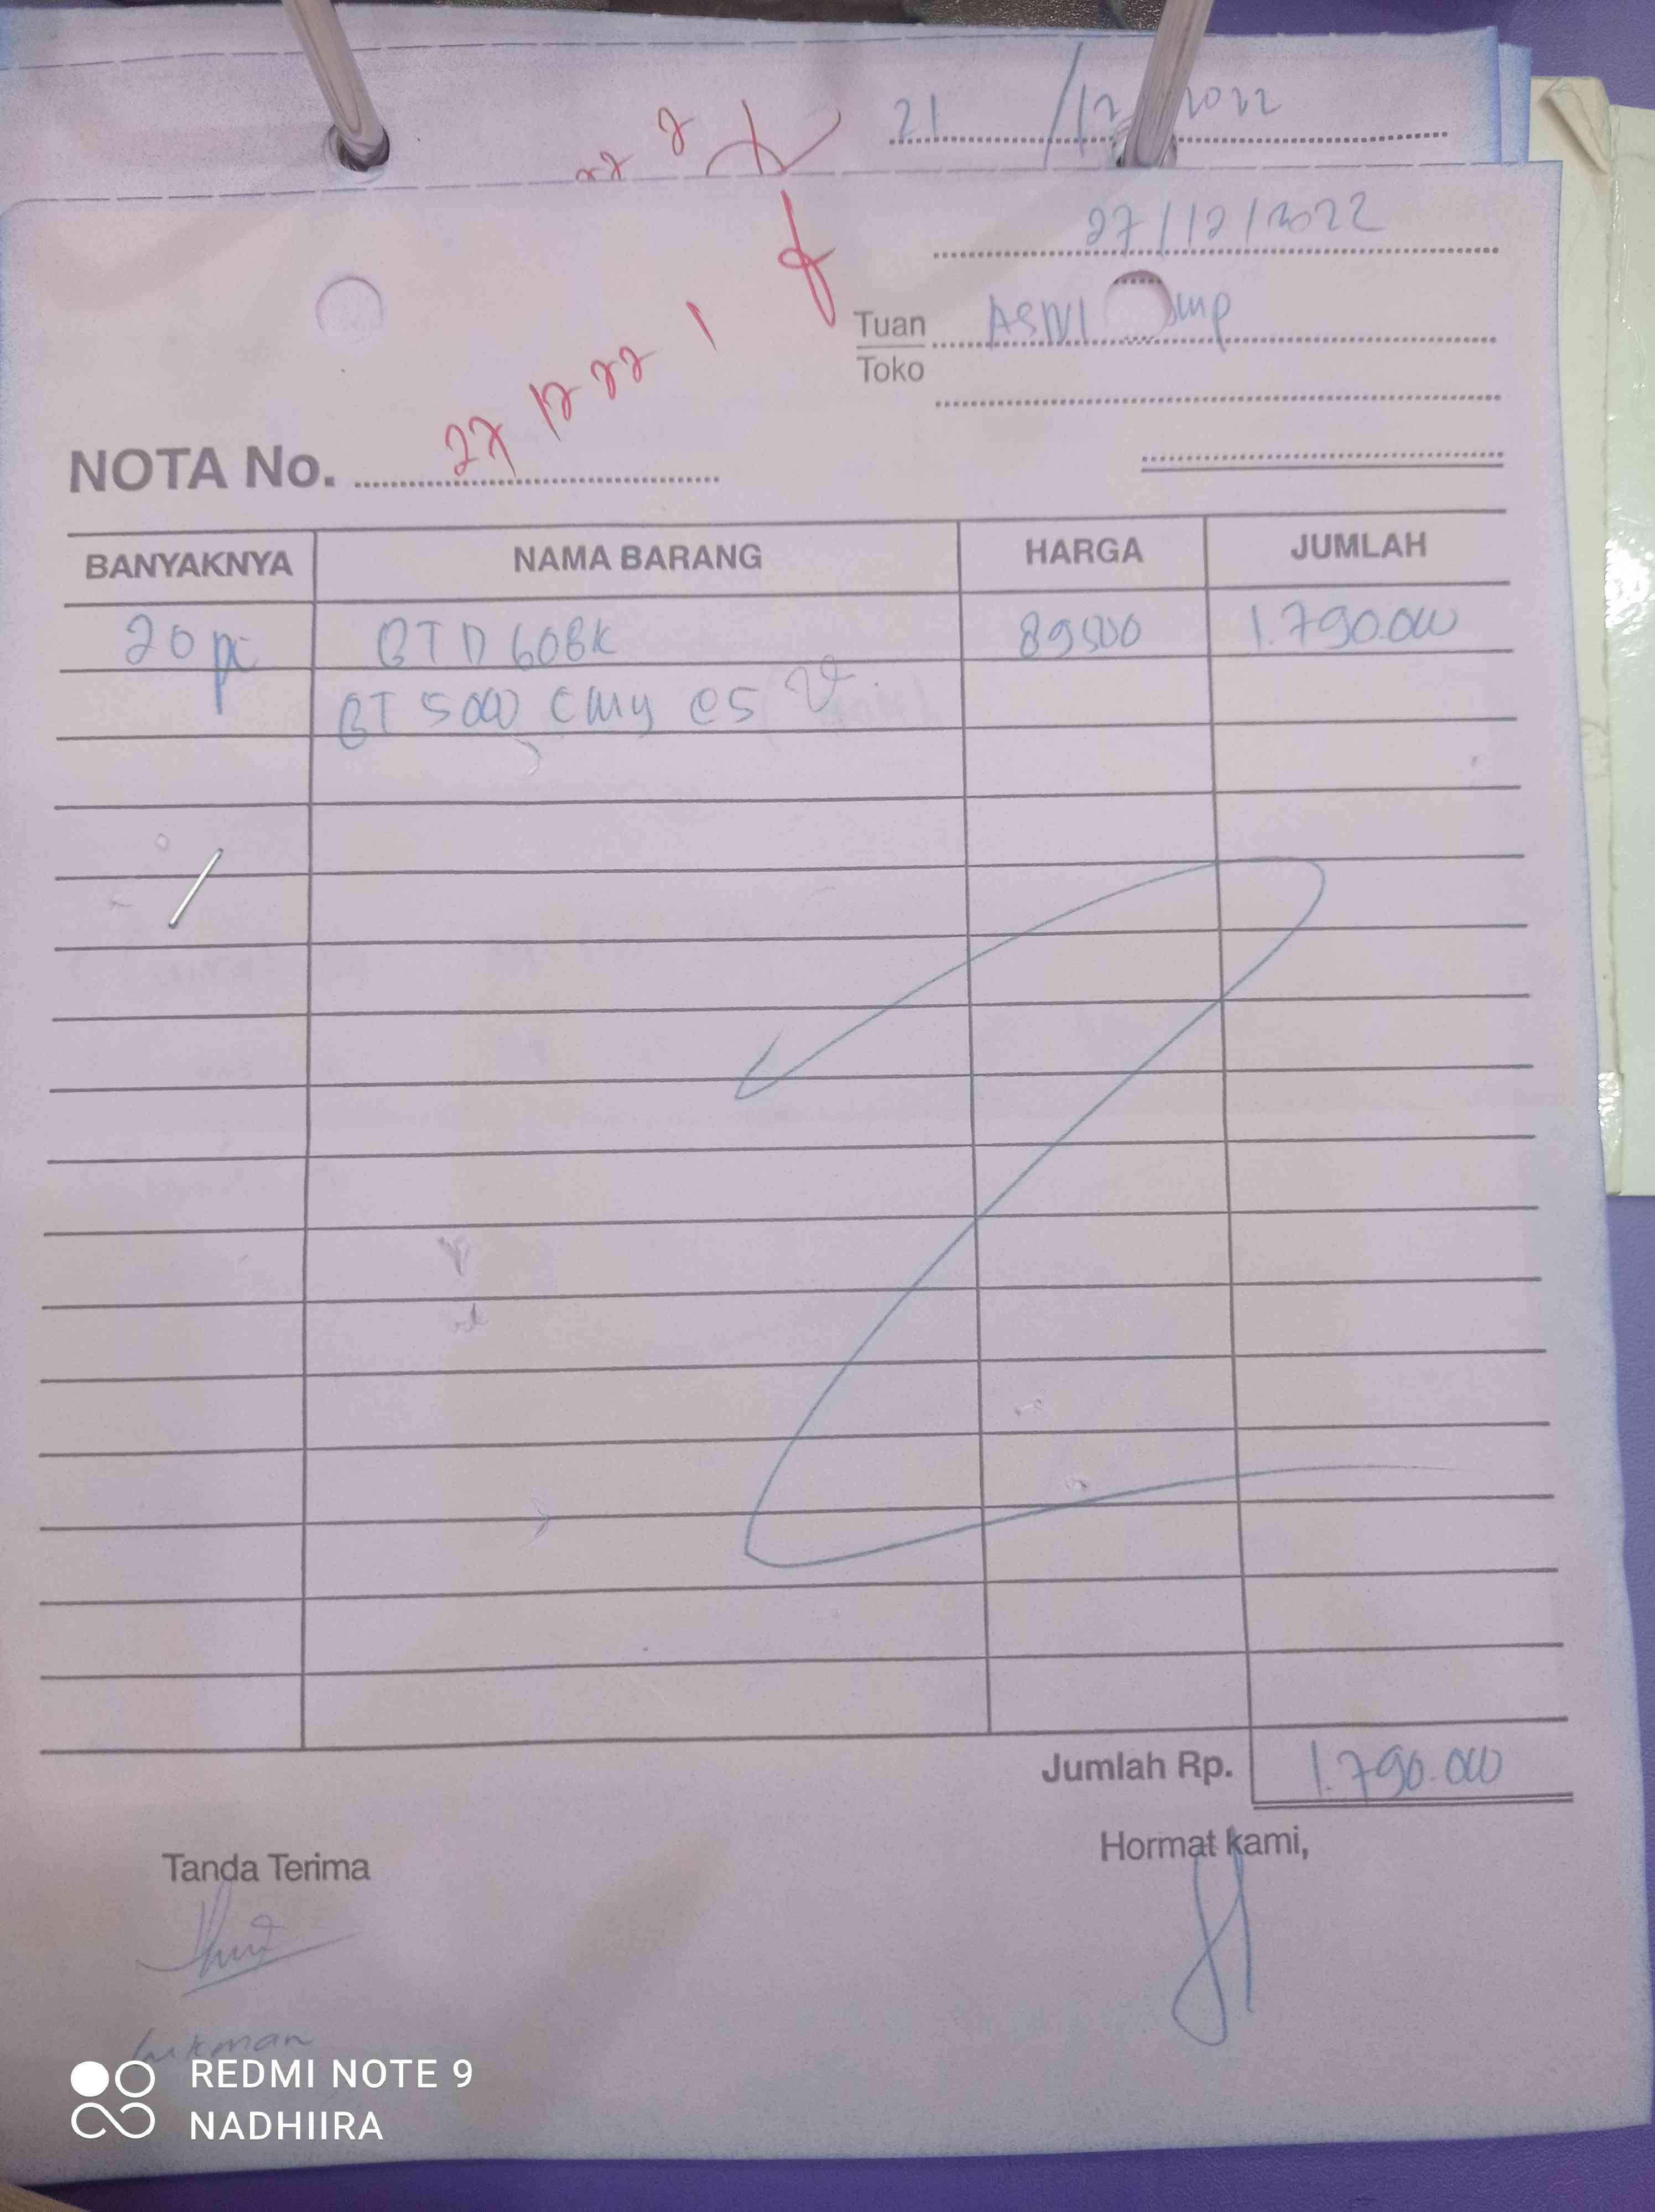 21 /12 2022
27/12/2022
Tuan ASIVI
Toko
27 12 22 1
NOTA No.
BANYAKNYA NAMA BARANG HARGA JUMLAH
20 pc BTD 60BK 89500 1.790.000
BT 5000 CMY @5
Jumlah Rp. 1.790.000
Tanda Terima Hormat kami,
Lukman
REDMI NOTE 9
NADHIIRA